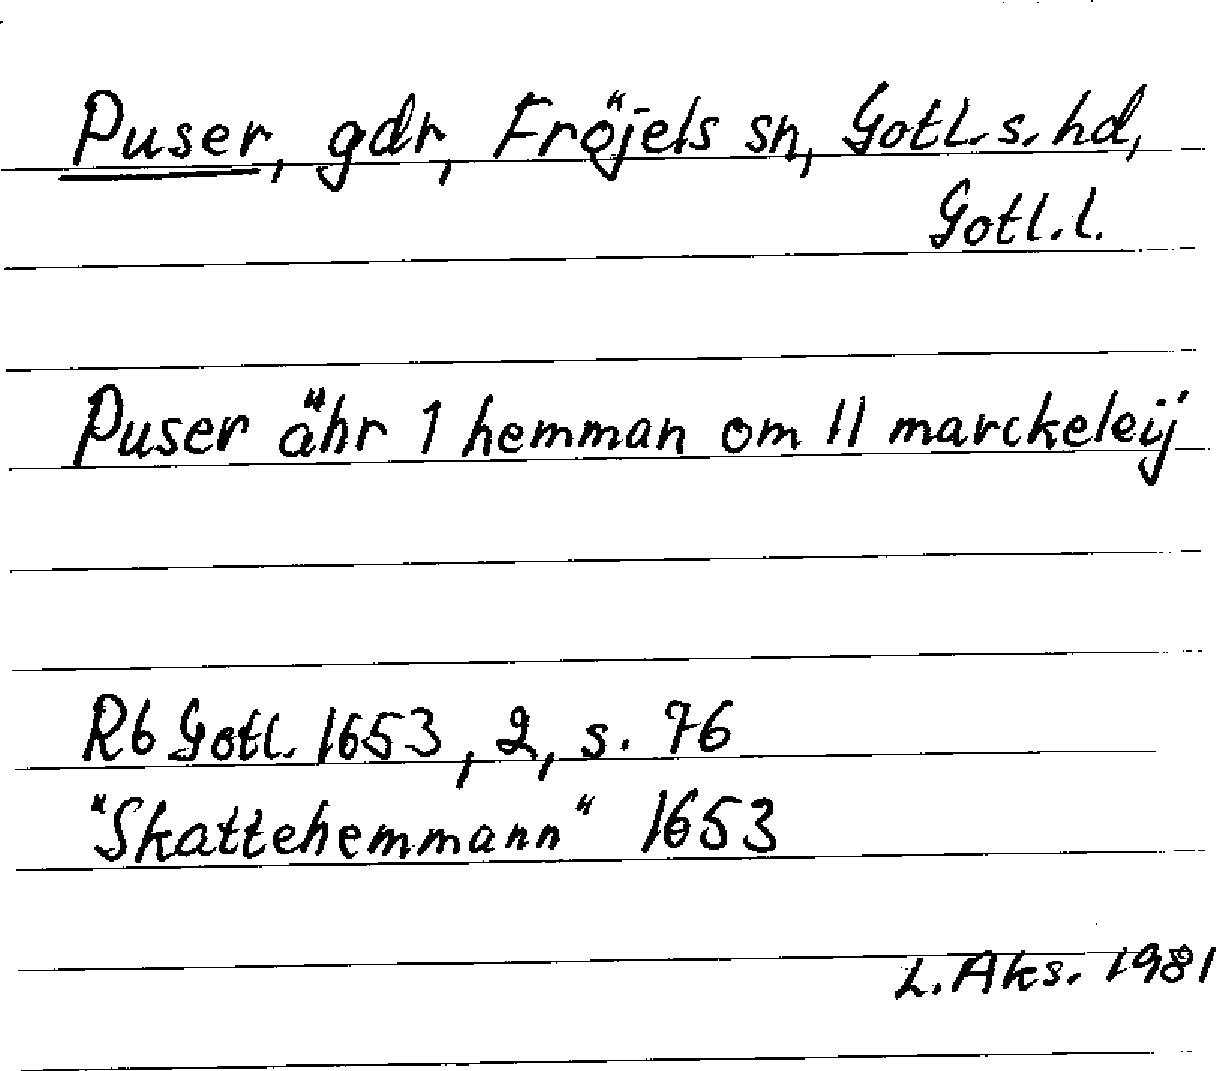 Puser, gdr, Fröjels sn, Gotl. s. hd,
Gotl. l.
Puser ähr 1 hemman om 11 marckeleij
Rb Gotl. 1653, 2, s. 76
"Skattehemmann" 1653
L. Aks. 1981